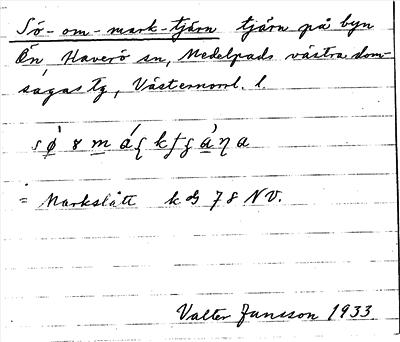 Sö-om-mark-tjärn tjärn på byn
Ön Haverö sn, Medelpads västra dom-
sagas tg, Västernorrl. l.
= Markslått k bl 78 NV.
Valter Jansson 1933